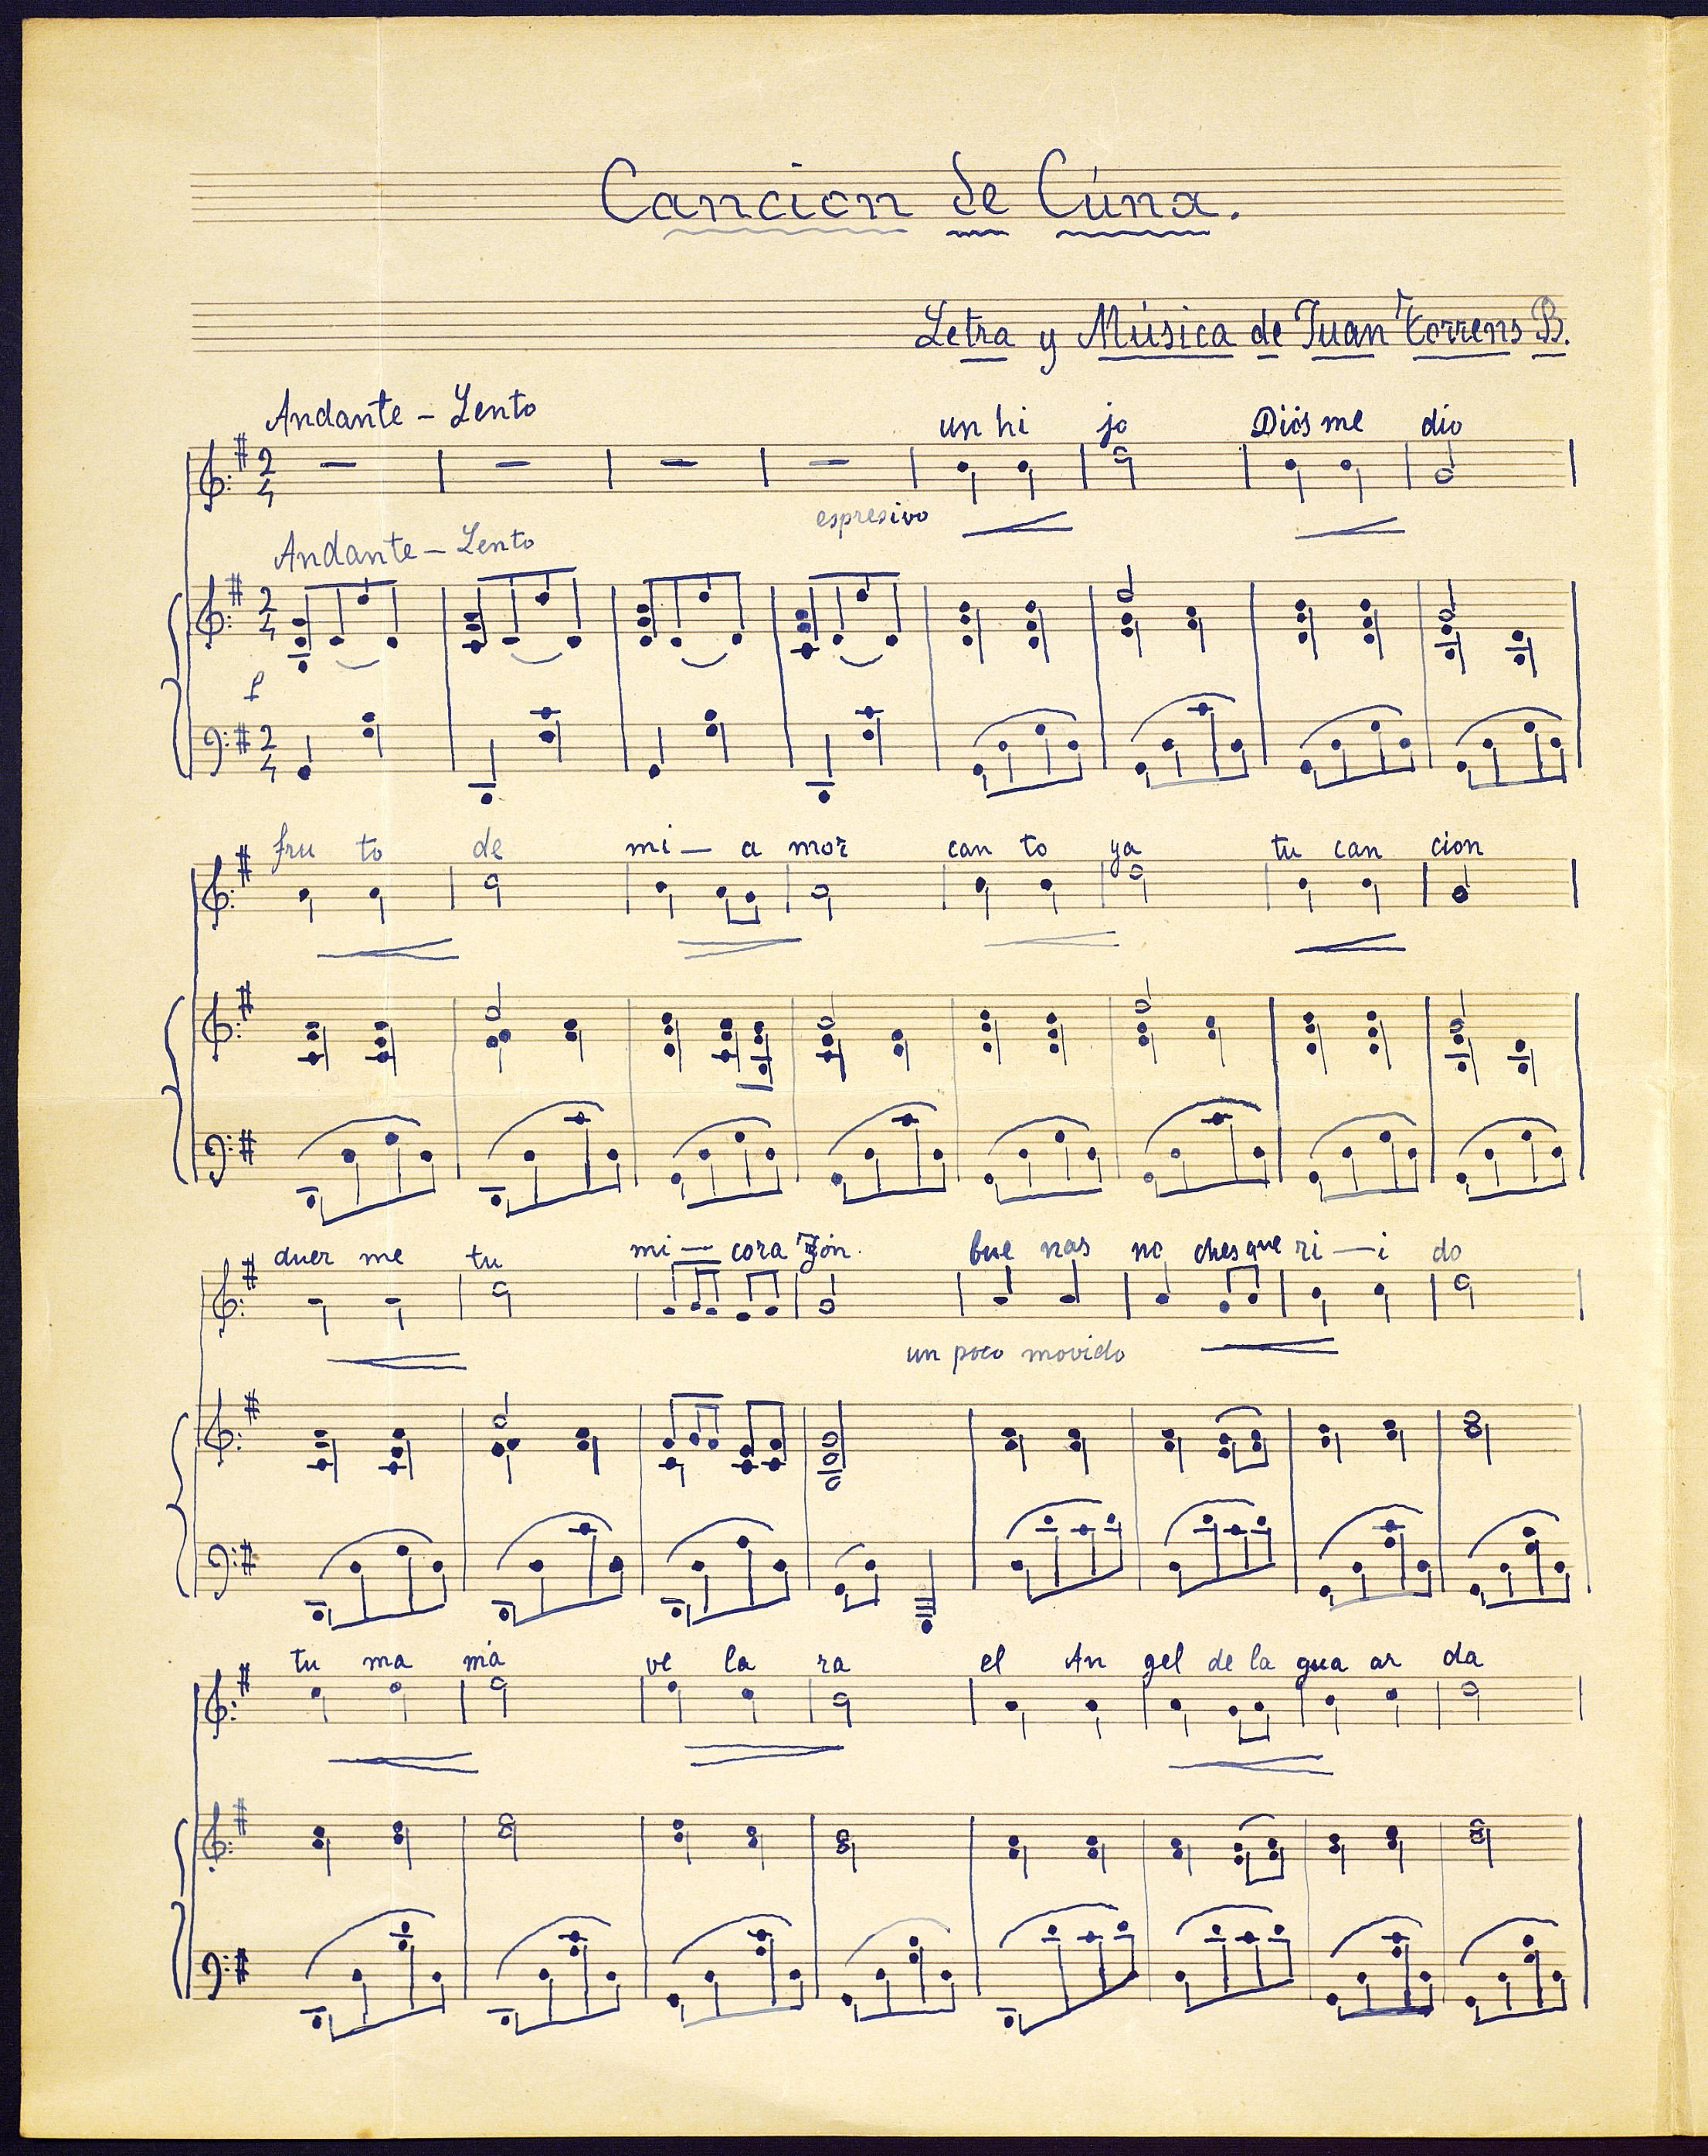 Cancion de Cúna.
Letra y Música de Juan Torrens B.
Andante - Lento
un hi jo Diós me dio
2 4
espresivo
Andante - Lento
2 4
f
2 4
fru to de mi — a mor can to ya tu can cion
duer me tu mi — cora zón. bue nas no ches que ri — i do
un poco movido
tu ma má ve la ra el An gel de la gua ar da